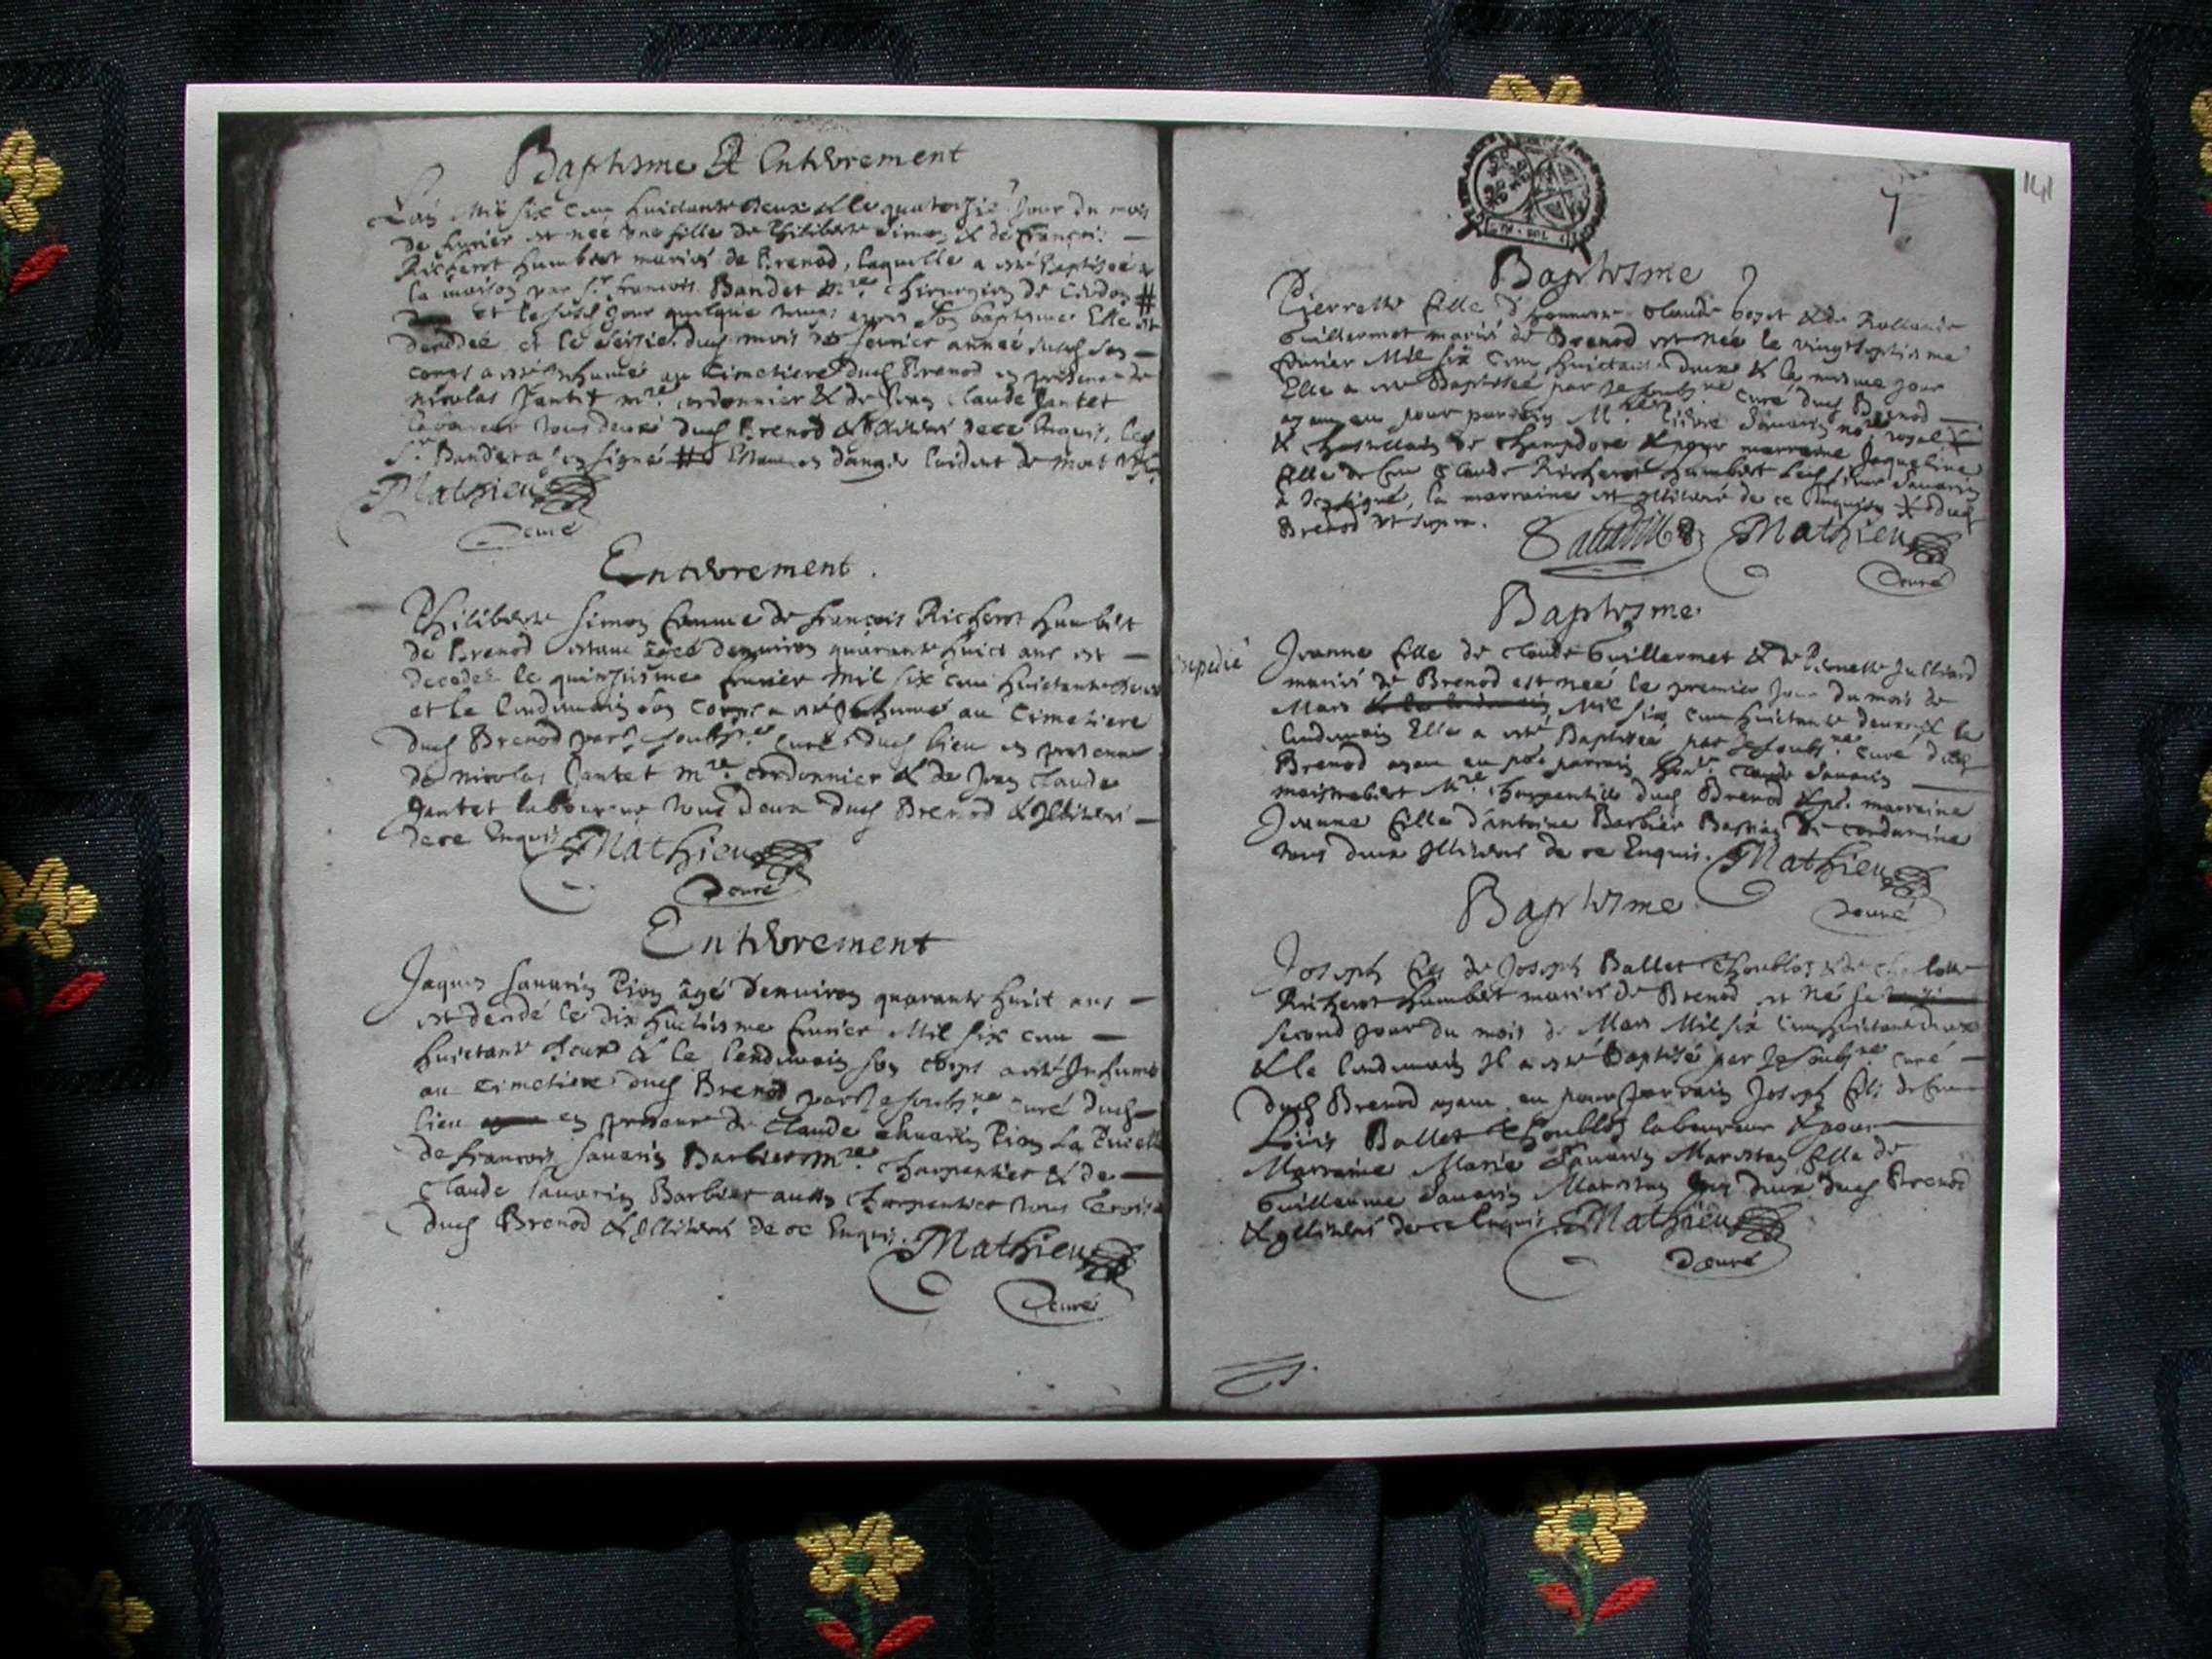 Baptisme Et Enterrement
Lan Mil six cens huictante deux & le quatorzie. Jour du mois
de feurier est neé vne fille de Philiberte Simon & de françois
Richerot humbert mariés de Brenod, laquelle a esté Baptiseé
la maison par Sr. francois Bandet mre. chirurgien de Cerdon #
et le susd jour quelque temps apres son baptisme Elle est
decedeé et le seizie. dud mois de feurier année susd son
corps a esté Inhumé au Cimetiere dud Brenod en presence de
nicolas Jantet mre. cordonnier & de Jean Claude Jantet
laboureur tous deux dud Brenod & Illiterés de ce Enquis, led
Sr. Bandet a signé # Estant en danger Euident de mort
Mathieu
curé
Enterrement.
Philiberte Simon femme de françois Richerot humbert
de Brenod estant âgeé denuiron quarante huict ans est
decedeé le quinziesme feurier mil six cens huictante deux
et le lendemain son corps a esté Inhumé au Cimetiere
dud Brenod par Je soubsne. curé dud lieu en presence
de nicolas Jantet mre. cordonnier & de Jean Claude
Jantet laboureur tous deux dud Brenod & Illiterés
de ce Enquis Mathieu
curé
Enterrement
Jaques Sauarin Pion âgé denuiron quarante huict ans
est decedé le dix huictiesme feurier Mil six cens
huictante deux & le lendemain son corps a esté Inhumé
au Cimetiere dud Brenod par Je soubsne. curé dud
lieu en presence de Claude Sauarin Pion La Pucelle
de francois Sauarin Barbier mre. charpentier & de
Claude Sauarin Barbier aussy charpentier tous trois
dud Brenod & Illiterés de ce Enquis. Mathieu
curé
141
7
Baptisme
Pierrette fille d'honneste Claude & de Rollande
Guillermet mariés de Brenod est neé le vingtseptiesme
feurier Mil six cens huictante deux & le mesme jour
Elle a esté Baptiseé par Je soubsne curé dud Brenod
ayant eu pour parrain Mre. Sauarin nore. royal
& Chastellain de Champdore & pour marraine Jaqueline
fille de feu Claude Richerot humbert led sieur Sauarin
a signé, la marraine est Illiteré de ce Enquise dud
Brenod vt supra.
Sauarin Mathieu
curé
Baptisme
expedié
Jeanne fille de Claude Guillermet & de Pernette Julliard
mariés de Brenod est neé le premier Jour du mois de
Mars Mil six cens huictante deux & le
lendemain Elle a esté Baptiseé par Je soubsne. curé dud
Brenod ayant eu pr. parrain honn. Claude Sauarin
Mre. Charpentier dud Brenod & pr. marraine
Jeanne fille d'antoine Barbier Bastian de Condamine
tous deux Illiterés de ce Enquis. Mathieu
curé
Baptisme
Joseph fils de Joseph Ballet & de
Richerot humbert mariés de Brenod est né le
second jour du mois de Mars Mil six cens huictante deux
& le lendemain Il a esté Baptisé par Je soubsne curé
dud Brenod ayant eu pour parrain Joseph fils de feu
Loüis Ballet laboureur & pour
Marraine Marie Sauarin fille de
Guillaume Sauarin tous deux dud Brenod
& Illiterés de ce Enquis Mathieu
curé